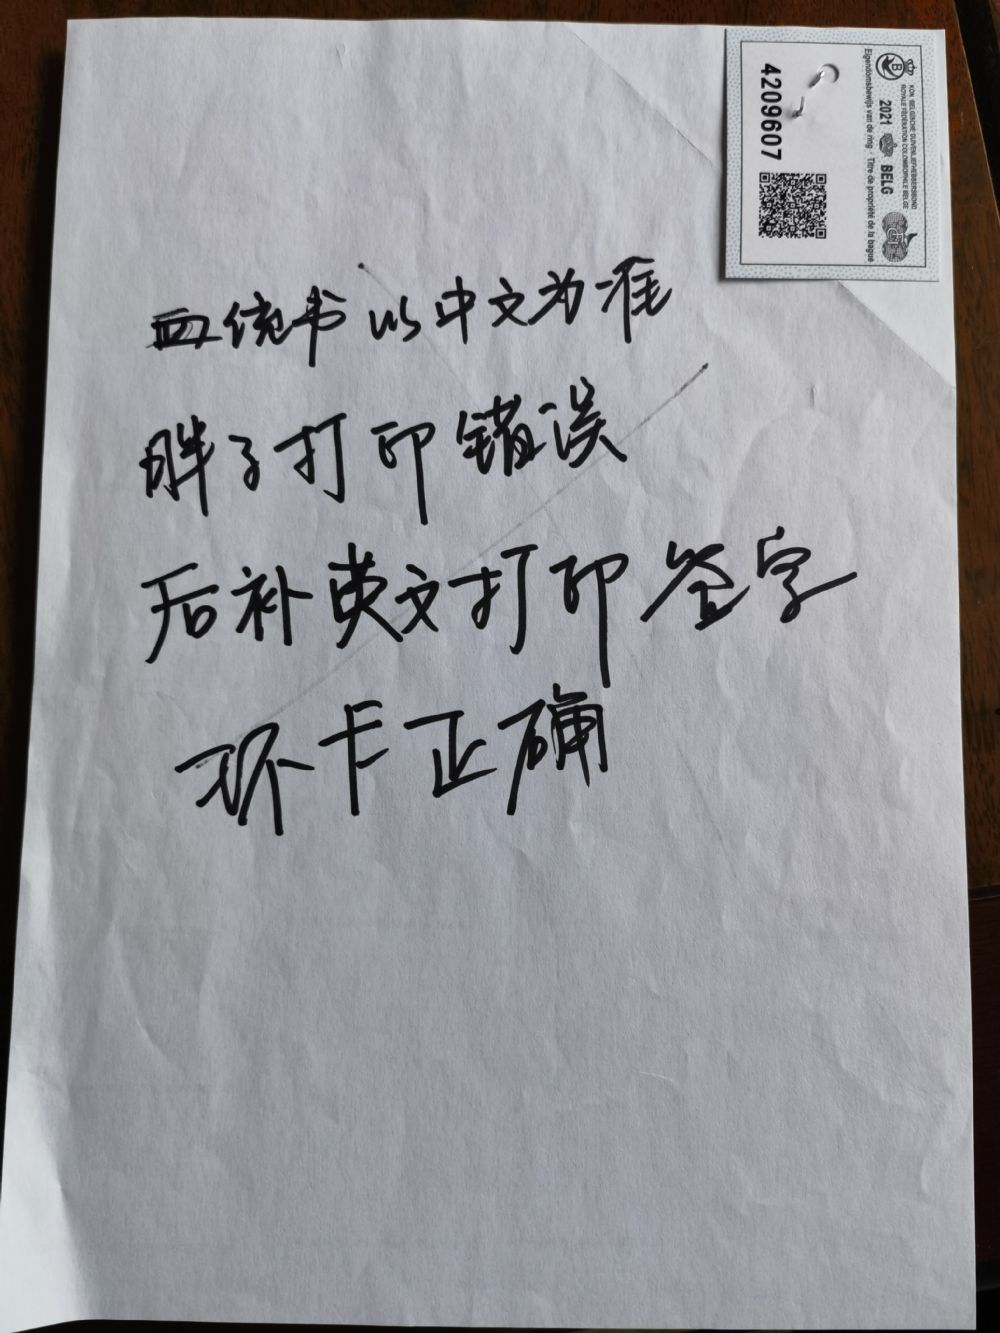 血统书以中文为准
胖子打印错误
后补英文打印签字
环卡正确
KON. BELGISCHE DUIVENLIEFHEBBERSBOND
ROYALE FÉDÉRATION COLOMBOPHILE BELGE
2021 BELG
Eigendomsbewijs van de ring - Titre de propriété de la bague
4209607